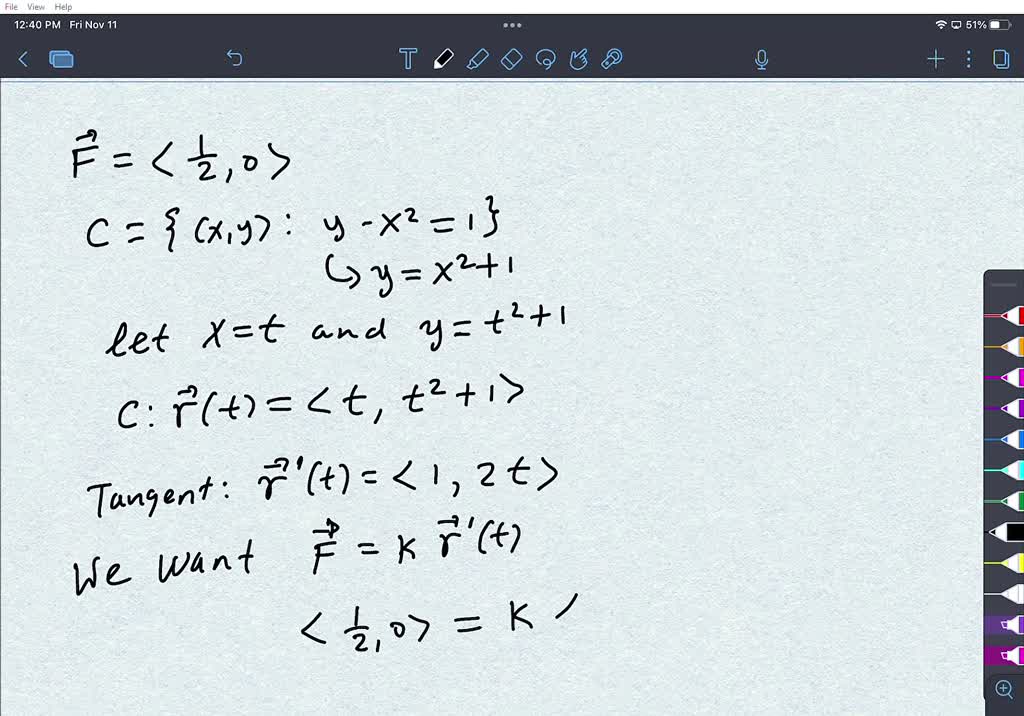 File View Help
12:40 PM Fri Nov 11 51%
T
F⃗ = < 1/2, 0 >
C = { (x,y): y - x² = 1 }
↳ y = x² + 1
let x = t and y = t² + 1
C: r⃗(t) = < t, t² + 1 >
Tangent: r⃗'(t) = < 1, 2t >
We want F⃗ = K r⃗'(t)
< 1/2, 0 > = K